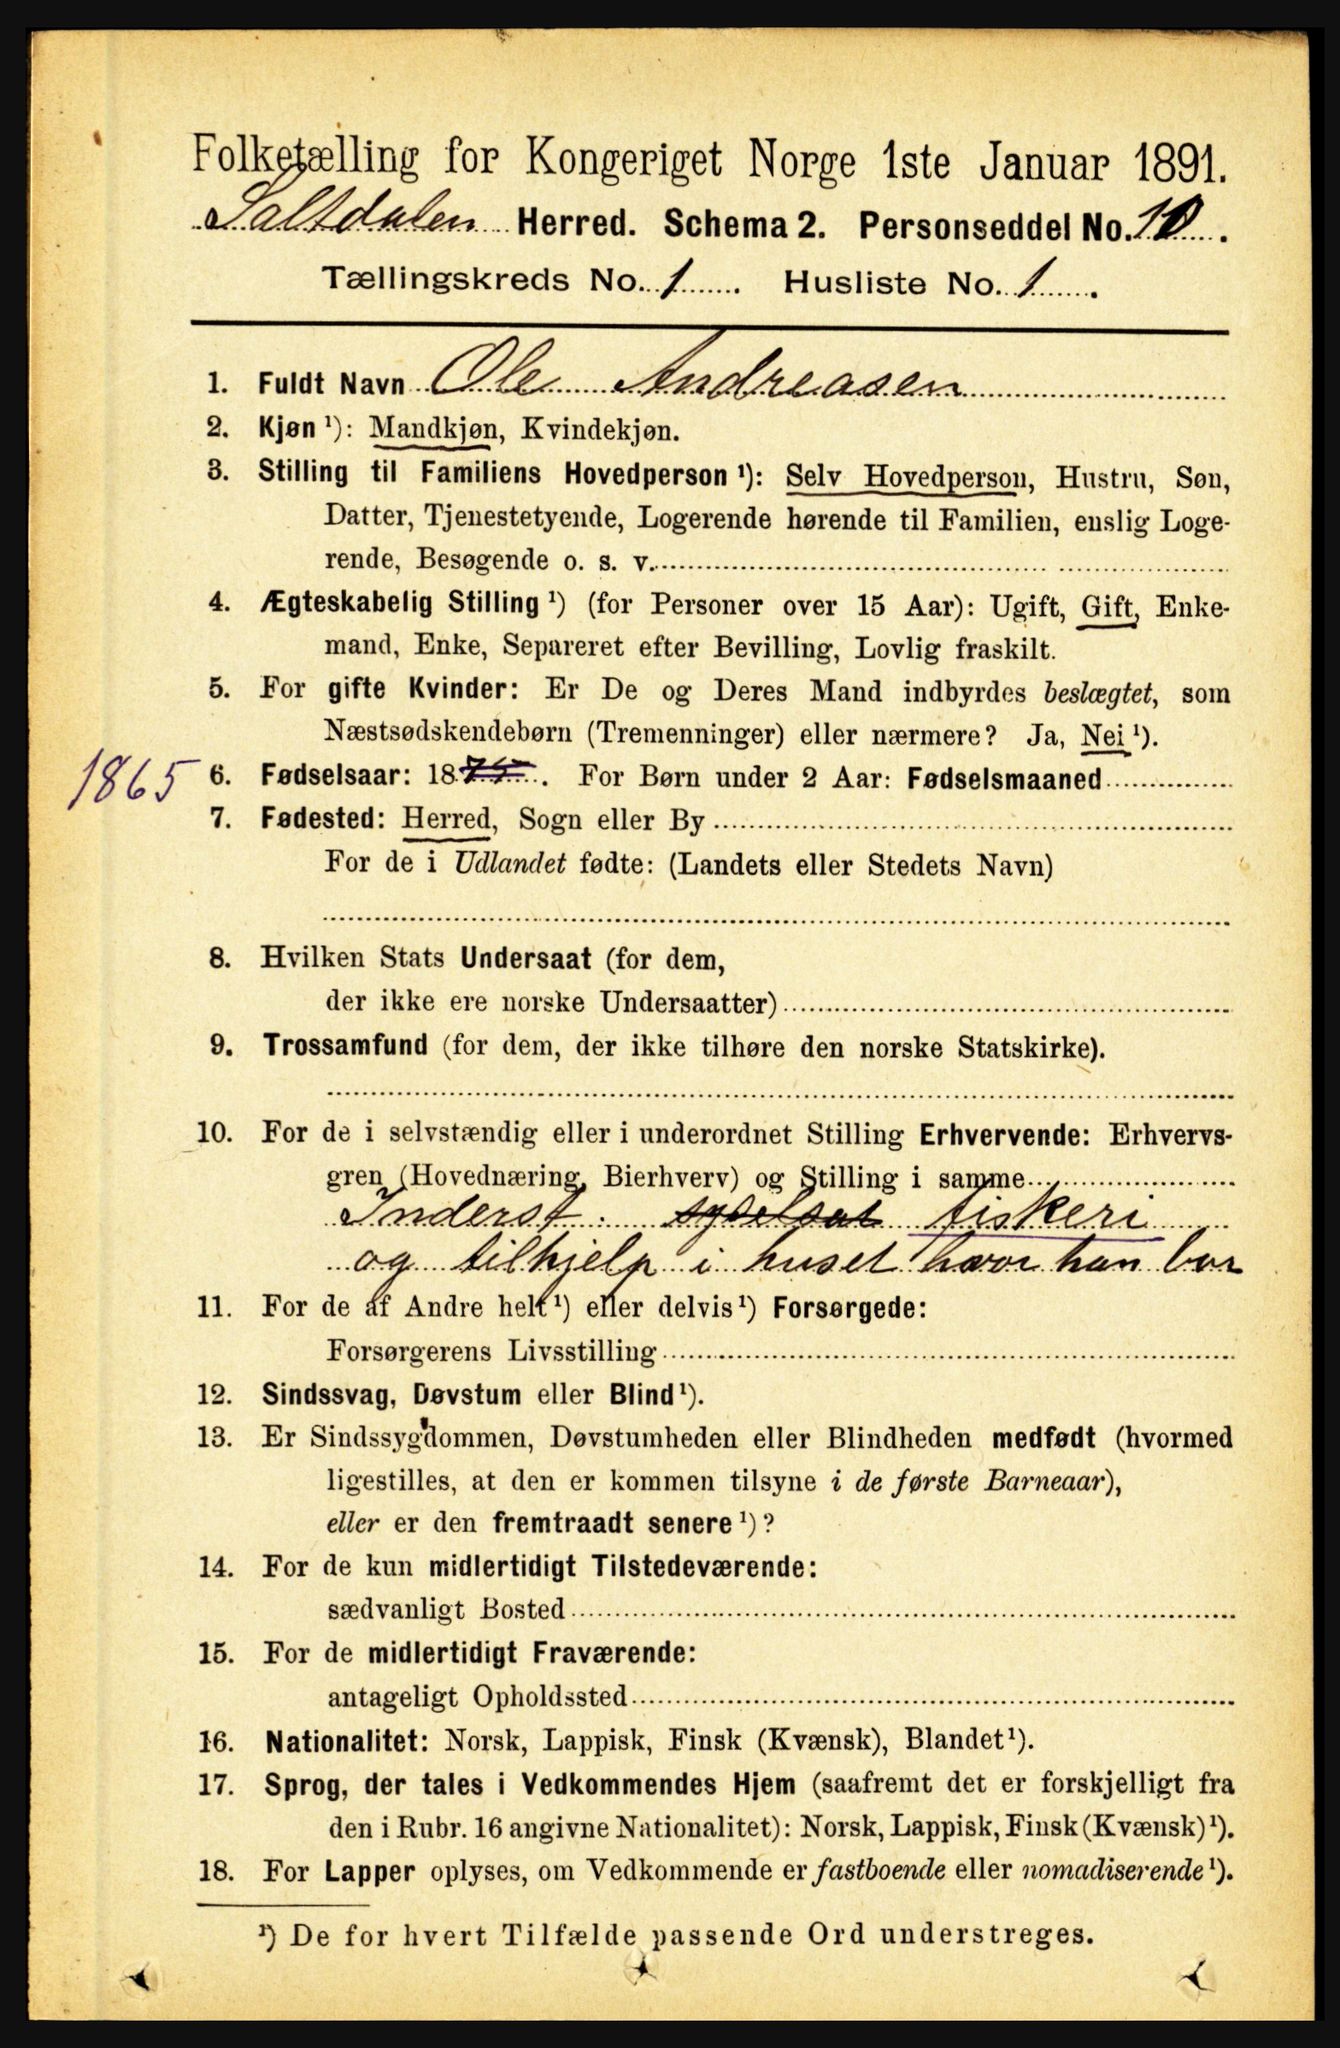 Folketælling for Kongeriget Norge 1ste Januar 1891.
Saltdalen Herred. Schema 2. Personseddel No. 10.
Tællingskreds No. 1. Husliste No. 1.
1. Fuldt Navn Ole Andreasen
2. Kjøn ¹): Mandkjøn, Kvindekjøn.
3. Stilling til Familiens Hovedperson ¹): Selv Hovedperson, Hustru, Søn,
Datter, Tjenestetyende, Logerende hørende til Familien, enslig Loge-
rende, Besøgende o. s. v.
4. Ægteskabelig Stilling ¹) (for Personer over 15 Aar): Ugift, Gift, Enke-
mand, Enke, Separeret efter Bevilling, Lovlig fraskilt.
5. For gifte Kvinder: Er De og Deres Mand indbyrdes beslægtet, som
Næstsødskendebørn (Tremenninger) eller nærmere? Ja, Nei ¹).
1865 6. Fødselsaar: 1875. For Børn under 2 Aar: Fødselsmaaned
7. Fødested: Herred, Sogn eller By
For de i Udlandet fødte: (Landets eller Stedets Navn)
8. Hvilken Stats Undersaat (for dem,
der ikke ere norske Undersaatter)
9. Trossamfund (for dem, der ikke tilhøre den norske Statskirke).
10. For de i selvstændig eller i underordnet Stilling Erhvervende: Erhvervs-
gren (Hovednæring, Bierhverv) og Stilling i samme
Inderst. syselsat fiskeri
og tilhjelp i huset hvor han bor
11. For de af Andre helt ¹) eller delvis ¹) Forsørgede:
Forsørgerens Livsstilling
12. Sindssvag, Døvstum eller Blind ¹).
13. Er Sindssygdommen, Døvstumheden eller Blindheden medfødt (hvormed
ligestilles, at den er kommen tilsyne i de første Barneaar),
eller er den fremtraadt senere ¹)?
14. For de kun midlertidigt Tilstedeværende:
sædvanligt Bosted
15. For de midlertidigt Fraværende:
antageligt Opholdssted
16. Nationalitet: Norsk, Lappisk, Finsk (Kvænsk), Blandet ¹).
17. Sprog, der tales i Vedkommendes Hjem (saafremt det er forskjelligt fra
den i Rubr. 16 angivne Nationalitet): Norsk, Lappisk, Finsk (Kvænsk) ¹).
18. For Lapper oplyses, om Vedkommende er fastboende eller nomadiserende ¹).
¹) De for hvert Tilfælde passende Ord understreges.